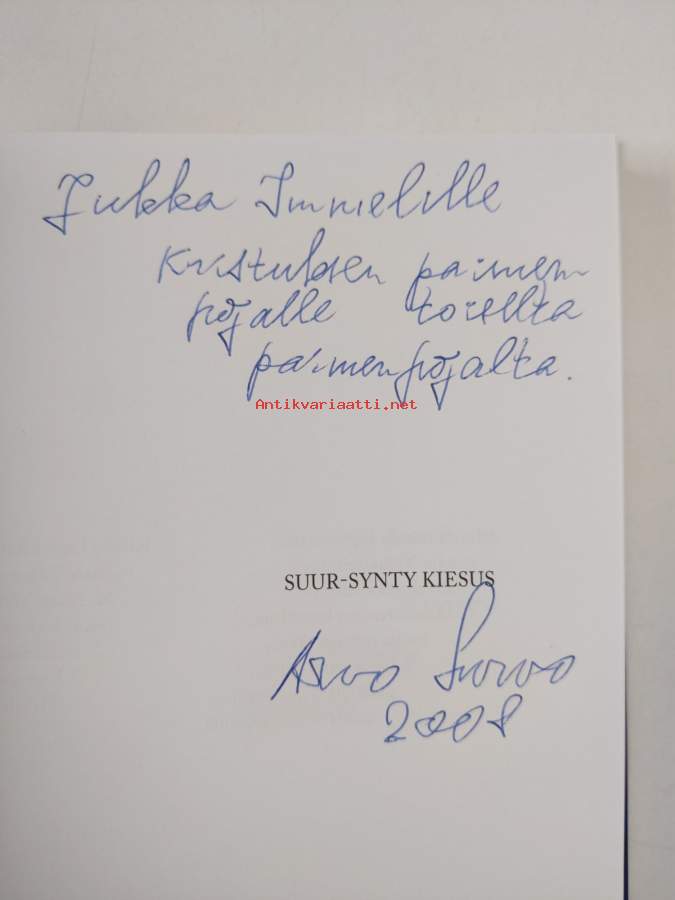 Jukka Immelille
Kristuksen paimen
pojalle toiselta
paimenpojalta.
Antikvariaatti.net
SUUR-SYNTY KIESUS
Arvo Survo
2008